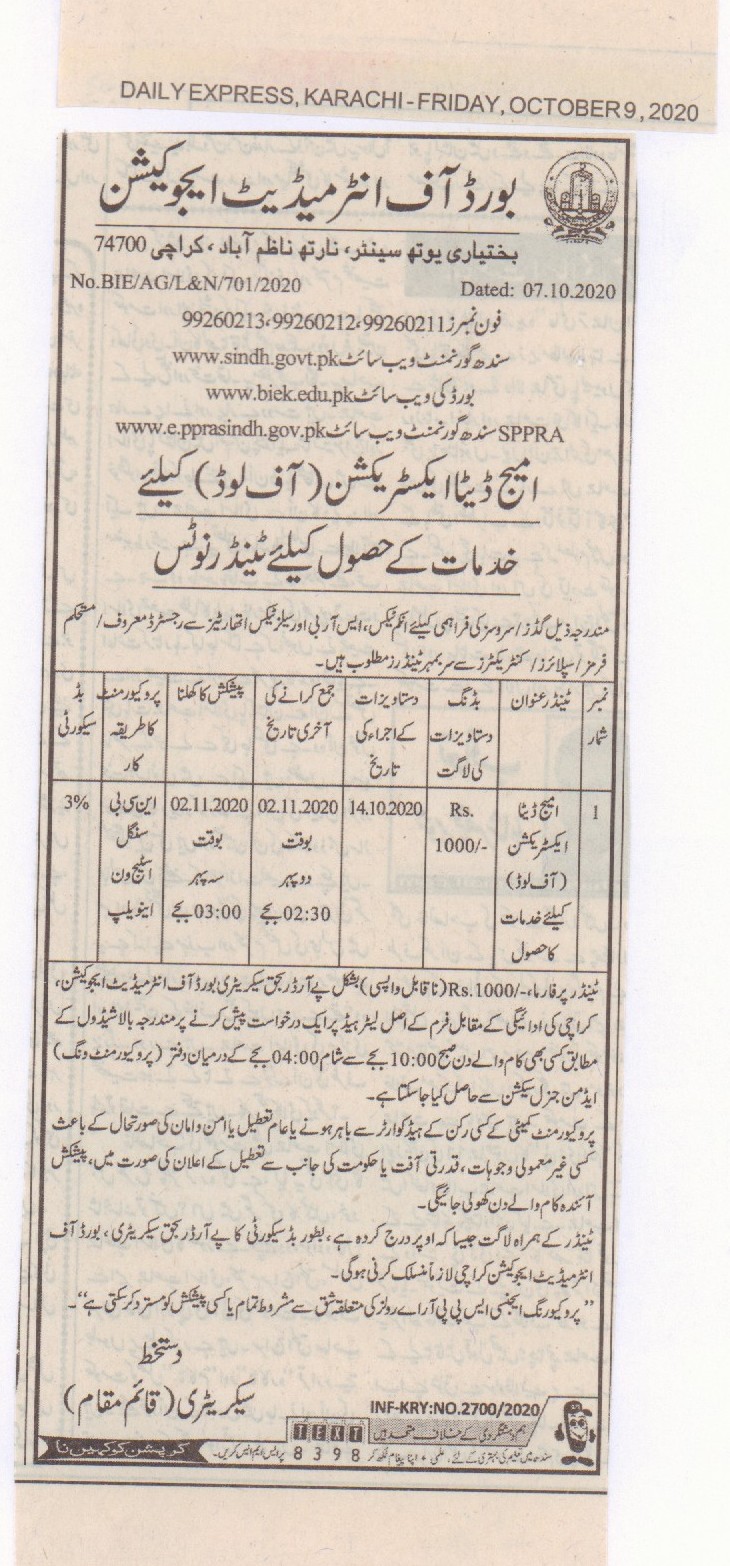 DAILY EXPRESS, KARACHI - FRIDAY, OCTOBER 9, 2020
بورڈ آف انٹرمیڈیٹ ایجوکیشن
بختیاری یوتھ سینٹر، نارتھ ناظم آباد، کراچی 74700
No.BIE/AG/L&N/701/2020 Dated: 07.10.2020
فون نمبرز 99260211، 99260212، 99260213
سندھ گورنمنٹ ویب سائٹ www.sindh.govt.pk
بورڈ کی ویب سائٹ www.biek.edu.pk
SPPRA سندھ گورنمنٹ ویب سائٹ www.e.pprasindh.gov.pk
امیج ڈیٹا ایکسٹریکشن (آف لوڈ) کیلئے
خدمات کے حصول کیلئے ٹینڈر نوٹس
مندرجہ ذیل گڈز/سروسز کی فراہمی کیلئے انکم ٹیکس، ایس آر بی اور سیلز ٹیکس اتھارٹیز سے رجسٹرڈ معروف/مستحکم
فرمز/سپلائرز/کنٹریکٹرز سے سربمہر ٹینڈرز مطلوب ہیں۔
نمبر شمار | ٹینڈر عنوان | بڈنگ دستاویزات کی لاگت | دستاویزات کے اجراء کی تاریخ | جمع کرانے کی آخری تاریخ | پیشکش کا کھلنا | پروکیورمنٹ کا طریقہ کار | بڈ سیکورٹی
1 | امیج ڈیٹا ایکسٹریکشن (آف لوڈ) کیلئے خدمات کا حصول | Rs. 1000/- | 14.10.2020 | 02.11.2020 بوقت دوپہر 02:30 بجے | 02.11.2020 بوقت سہ پہر 03:00 بجے | این سی بی سنگل اسٹیج ون اینویلپ | 3%
ٹینڈر پرفارما، Rs.1000/- (ناقابل واپسی) بشکل پے آرڈر بحق سیکریٹری بورڈ آف انٹرمیڈیٹ ایجوکیشن،
کراچی کی ادائیگی کے مقابل فرم کے اصل لیٹر ہیڈ پر ایک درخواست پیش کرنے پر مندرجہ بالا شیڈول کے
مطابق کسی بھی کام والے دن صبح 10:00 بجے سے شام 04:00 بجے کے درمیان دفتر (پروکیورمنٹ ونگ)
ایڈمن جنرل سیکشن سے حاصل کیا جاسکتا ہے۔
پروکیورمنٹ کمیٹی کے کسی رکن کے ہیڈ کوارٹر سے باہر ہونے یا عام تعطیل یا امن و امان کی صورتحال کے باعث
کسی غیر معمولی وجوہات، قدرتی آفت یا حکومت کی جانب سے تعطیل کے اعلان کی صورت میں، پیشکش
آئندہ کام والے دن کھولی جائیگی۔
ٹینڈر کے ہمراہ لاگت جیسا کہ اوپر درج کردہ ہے، بطور بڈ سیکورٹی کا پے آرڈر بحق سیکریٹری، بورڈ آف
انٹرمیڈیٹ ایجوکیشن کراچی لازماً منسلک کرنی ہوگی۔
"پروکیورنگ ایجنسی ایس پی پی آر اے رولز کی متعلقہ شق سے مشروط تمام یا کسی پیشکش کو مسترد کرسکتی ہے"۔
دستخط
سیکریٹری (قائم مقام)
INF-KRY:NO.2700/2020
ہم دہشتگردی کے خلاف متحد ہیں TEXT
سندھ میں تعلیم کی بہتری کے لئے، علمی + اپنا پیغام لکھ کر 8398 پر ایس ایم ایس کریں۔
کرپشن کو کہیں نا